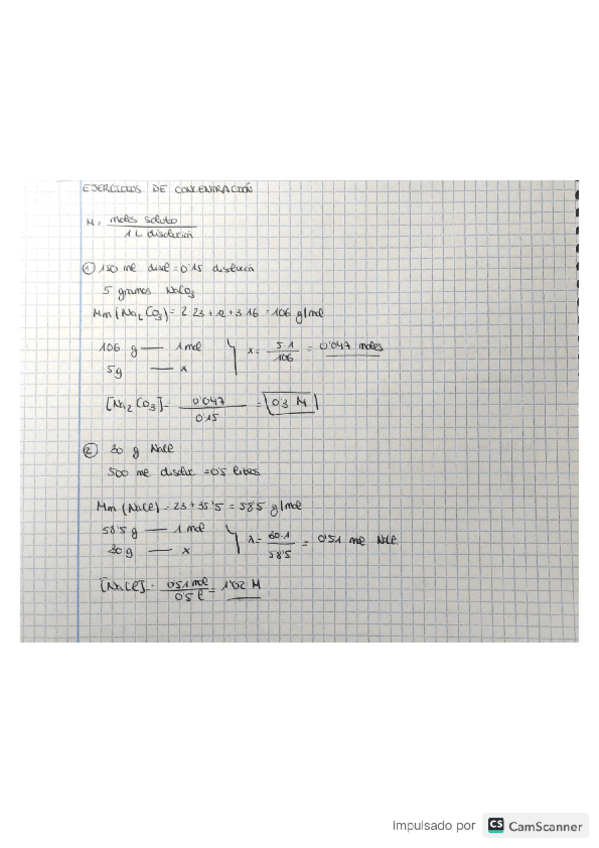 EJERCICIOS DE CONCENTRACIÓN
M = moles soluto / 1 L disolución
① 150 ml disol = 0'15 disolución
5 gramos NaCO3
Mm (Na2CO3) = 2·23 + 12 + 3·16 = 106 g/mol
106 g — 1 mol
5g — x
x = 5·1 / 106 = 0'047 moles
[Na2CO3] = 0'047 / 0'15 = 0'3 M
② 30 g NaCl
500 ml disoluc = 0'5 litros
Mm (NaCl) = 23 + 35'5 = 58'5 g/mol
58'5 g — 1 mol
30g — x
x = 30·1 / 58'5 = 0'51 mol NaCl
[NaCl] = 0'51 mol / 0'5 l = 1'02 M
Impulsado por CS CamScanner